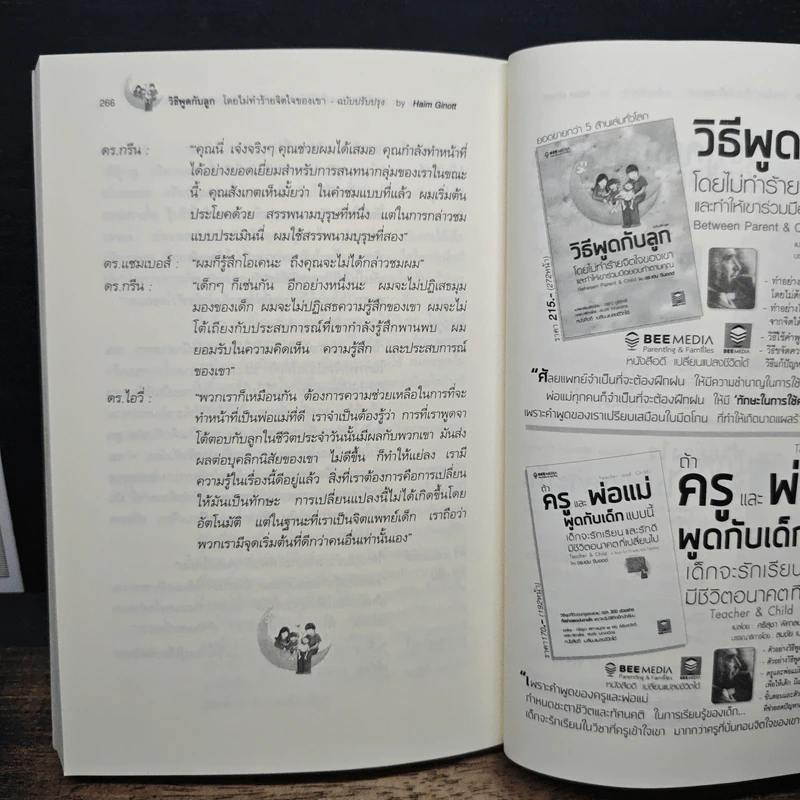 266 วิธีพูดกับลูก โดยไม่ทำร้ายจิตใจของเขา - ฉบับปรับปรุง by Haim Ginott
ดร.กรีน : "คุณนี่ เจ๋งจริงๆ คุณช่วยผมได้เสมอ คุณกำลังทำหน้าที่
ได้อย่างยอดเยี่ยมสำหรับการสนทนากลุ่มของเราในขณะ
นี้ คุณสังเกตเห็นมั้ยว่า ในคำชมแบบที่แล้ว ผมเริ่มต้น
ประโยคด้วย สรรพนามบุรุษที่หนึ่ง แต่ในการกล่าวชม
แบบประเมินนี่ ผมใช้สรรพนามบุรุษที่สอง"
ดร.แชมเบอส์ : "ผมก็รู้สึกโอเคนะ ถึงคุณจะไม่ได้กล่าวชมผม"
ดร.กรีน : "เด็กๆ ก็เช่นกัน อีกอย่างหนึ่งนะ ผมจะไม่ปฏิเสธมุม
มองของเด็ก ผมจะไม่ปฏิเสธความรู้สึกของเขา ผมจะไม่
โต้เถียงกับประสบการณ์ที่เขากำลังรู้สึกพานพบ ผม
ยอมรับในความคิดเห็น ความรู้สึก และประสบการณ์
ของเขา"
ดร.ไอวี่ : "พวกเราก็เหมือนกัน ต้องการความช่วยเหลือในการที่จะ
ทำหน้าที่เป็นพ่อแม่ที่ดี เราจำเป็นต้องรู้ว่า การที่เราพูดจา
โต้ตอบกับลูกในชีวิตประจำวันนั้นมีผลกับพวกเขา มันส่ง
ผลต่อบุคลิกนิสัยของเขา ไม่ดีขึ้น ก็ทำให้แย่ลง เรามี
ความรู้ในเรื่องนี้ดีอยู่แล้ว สิ่งที่เราต้องการคือการเปลี่ยน
ให้มันเป็นทักษะ การเปลี่ยนแปลงนี้ไม่ได้เกิดขึ้นโดย
อัตโนมัติ แต่ในฐานะที่เราเป็นจิตแพทย์เด็ก เราถือว่า
พวกเรามีจุดเริ่มต้นที่ดีกว่าคนอื่นเท่านั้นเอง"
ยอดขายกว่า 5 ล้านเล่มทั่วโลก
BEE MEDIA
วิธีพูดกับลูก
โดยไม่ทำร้ายจิตใจของเขา
และทำให้เขาร่วมมือยอมทำตามคุณ
Between Parent & Child
หนังสือดี เปลี่ยนแปลงชีวิตได้
ราคา 215.- (272หน้า)
วิธีพูด
โดยไม่ทำร้าย
และทำให้เขาร่วมมือ
Between Parent & C
- ทำอย่าง
โดยไม่ต้
- ทำอย่าง
จากจิตใต้
- วิธีใช้คำพู
BEE MEDIA
Parenting & Families
BEE MEDIA
หนังสือดี เปลี่ยนแปลงชีวิตได้
"ศัลยแพทย์จำเป็นที่จะต้องฝึกฝน ให้มีความชำนาญในการใช้
พ่อแม่ทุกคนก็จำเป็นที่จะต้องฝึกฝน ให้มี 'ทักษะในการใช้ค
เพราะคำพูดของเราเปรียบเสมือนใบมีดโกน ที่ทำให้เกิดบาดแผลร้
BEE MEDIA
Teacher and Child
ถ้า
ครู และ พ่อแม่
พูดกับเด็ก แบบนี้
เด็กจะรักเรียน และรักดี
มีชีวิตอนาคตที่เปลี่ยนไป
Teacher & Child
หนังสือดี เปลี่ยนแปลงชีวิตได้
ราคา170.- (192หน้า)
ถ้า
ครู และ พ่
พูดกับเด็ก
เด็กจะรักเรียน
มีชีวิตอนาคตที่
Teacher & Child
- ตัวอย่างวิธีพูด
- ตัวอย่างวิธีพูด
BEE MEDIA
Parenting & Families
BEE MEDIA
หนังสือดี เปลี่ยนแปลงชีวิตได้
"เพราะคำพูดของครูและพ่อแม่
กำหนดชะตาชีวิตและทัศนคติ ในการเรียนรู้ของเด็ก...
เด็กจะรักเรียนในวิชาที่ครูเข้าใจเขา มากกว่าครูที่บั่นทอนจิตใจของเขา